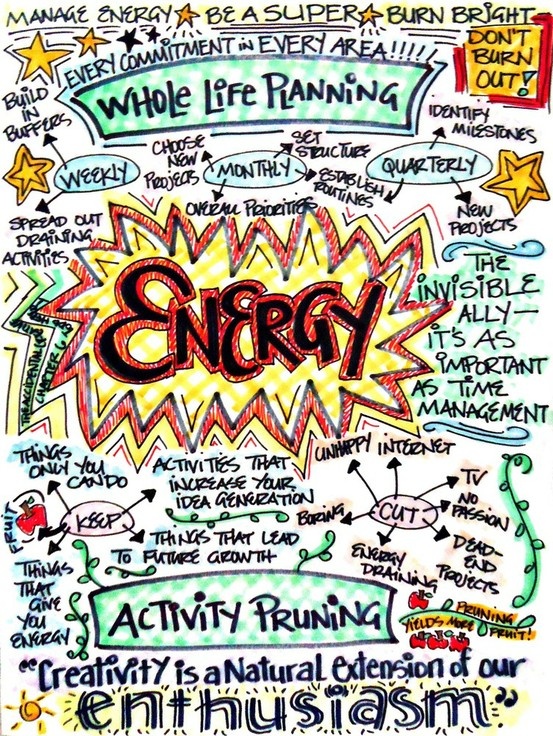 MANAGE ENERGY BE A SUPER BURN BRIGHT
DON'T
BURN
OUT!
EVERY COMMITMENT IN EVERY AREA!!!!!
WHOLE LIFE PLANNING
BUILD
IN
BUFFERS
WEEKLY
SPREAD OUT
DRAINING
ACTIVITIES
CHOOSE
NEW
PROJECTS
MONTHLY
SET
STRUCTURE
ESTABLISH
ROUTINES
OVERALL PRIORITIES
IDENTIFY
MILESTONES
QUARTERLY
NEW
PROJECTS
ENERGY
THE ACCIDENTAL
CHAPTER 6
THE
INVISIBLE
ALLY—
IT'S AS
IMPORTANT
AS TIME
MANAGEMENT
THINGS
ONLY YOU
CAN DO
ACTIVITIES THAT
INCREASE YOUR
IDEA GENERATION
KEEP
FRUIT
THINGS THAT LEAD
TO FUTURE GROWTH
THINGS
THAT
GIVE
YOU
ENERGY
UNHAPPY INTERNET
TV
NO
PASSION
CUT
BORING
ENERGY
DRAINING
DEAD-
END
PROJECTS
ACTIVITY PRUNING
PRUNING
YIELDS MORE
FRUIT!
"Creativity is a Natural extension of our
enthusiasm"